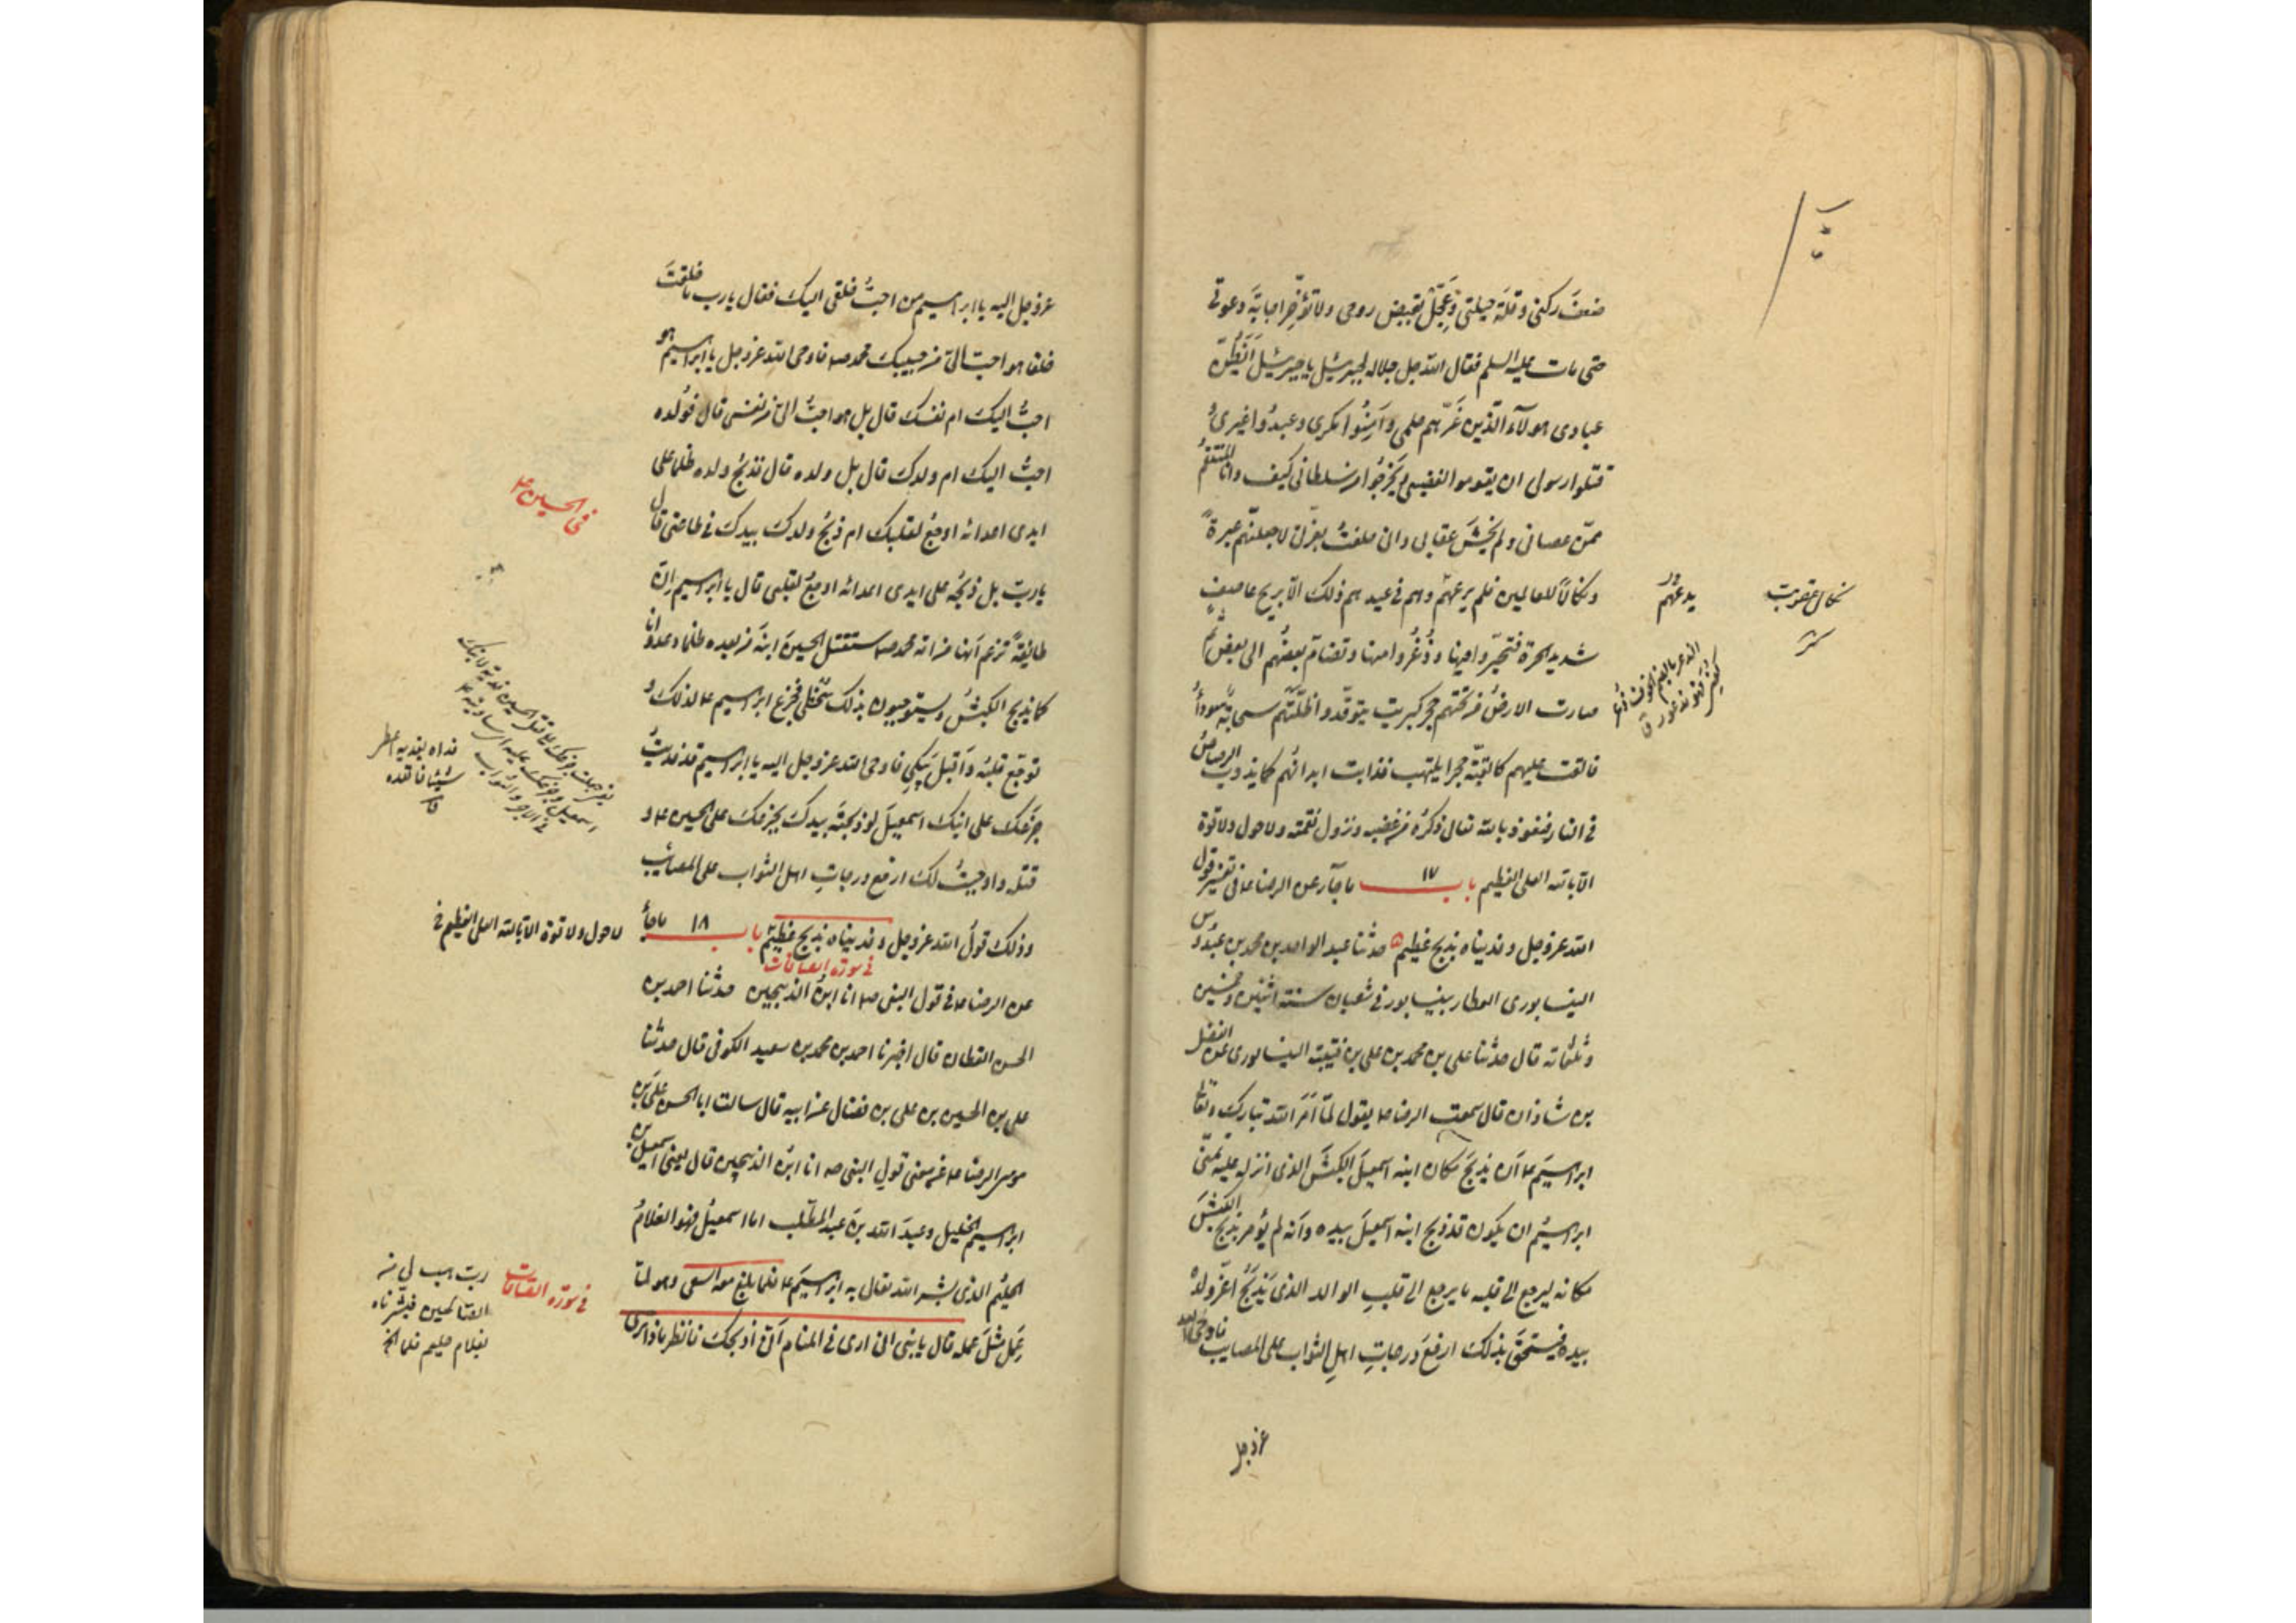 ضعفَ ركنى وقلّة حيلتى وعَجّلْ بقبض روحى ولا تؤخّر اجابة دعوتى
حتى مات عليه السلم فقال الله جل جلاله لجبرئيل يا جبرئيل أيَظُنّ
عبادى هولآء الّذين غَرّهم حلمى وآمِنُوا مكرى وعبدُوا غيرى وَ
قتلوا رسولى ان يقوموا لغضبى او يَخرُجُوا من سلطانى كيف وانا المنتقمُ
ممّن عصانى ولم يخشَ عقابى وانى حلفتُ بعزّتى لاجعلنّهم عبرةً
ونكالاً للعالمين فلم يرعهم وهم فى عيدهم ذلك الّا بريح عاصفٍ
شديد الحمرة فتحيّروا فيها وذُعُروا منها وتضامّ بعضُهم الى بعضٍ ثم
صارت الارضُ من تحتهم حجر كبريت يتوقّد واظلّتهم سحابةٌ سوداءُ
فالقت عليهم كالقبّة جمراً يلتهب فذابت ابدانُهم كما يذوب الرصاصُ
فى النار فنعوذ بالله تعالى ذكرُه من غضبه ونزول نقمته ولا حول ولا قوة
الّا بالله العلى العظيم باب ١٧ ما جآء عن الرضا ع فى تفسير قول
الله عز وجل وفديناه بذبح عظيم حدثنا عبد الواحد بن محمد بن عبدُوس
النيسابورى العطار بنيسابور فى شعبان سنة اثنين وخمسين
وثلثمائه قال حدثنا على بن محمد بن على بن قتيبة النيسابورى عن الفضل
بن شاذان قال سمعت الرضا ع يقول لمّا اَمَرَ الله تبارك وتعالى
ابراهيمَ ع اَن يذبحَ مكان ابنه اسمعيلَ الكبشَ الذى انزله عليه تمنّى
ابراهيمُ ان يكون قد ذبح ابنه اسمعيلَ بيده وانّه لم يؤمر بذبح الكبشَ
مكانه ليرجع الى قلبه ما يرجع الى قلبِ الوالد الذى يَذبَحُ اعزّ ولدهِ
بيده فيستحقَّ بذلك ارفعَ درجاتِ اهلِ الثواب على المصايب فاوحى الله
عز وجل
نكال عقوبت
يدعهم
عز وجل اليه يا ابراهيم من احبُّ خلقى اليك فقال يا رب ما خلقتَ
خلقا هو احبّ الىّ من حبيبك محمد ص فاوحى الله عز وجل يا ابراهيم هو
احبُّ اليك ام نفسك قال بل هو احبُّ الىّ من نفسى قال فوُلده
احبُّ اليك ام ولدك قال بل ولده قال فذبحُ ولده ظلما على
ايدى اعدائه اوجعُ لقلبك ام ذبحُ ولدك بيدك فى طاعتى قال
يا ربّ بل ذبحُه على ايدى اعدائه اوجعُ لقلبى قال يا ابراهيم انّ
طائفةً تزعم اَنها من امة محمد ص ستقتل الحسينَ ابنَه من بعده ظلما وعدوانا
كما يذبح الكبشُ ويستوجبون بذلك سَخَطى فجزع ابراهيم ع لذلك و
توجّع قلبُه وَاَقبلَ يَبكى فاوحى الله عز وجل اليه يا ابراهيم قد فديتُ
جزَعَك على ابنك اسمعيلَ لو ذبحتَه بيدك بجزعك على الحسين ع و
قتله واوجبتُ لك ارفع درجاتِ اهل الثواب على المصائب
وذلك قولُ الله عز وجل وفديناه بذبح عظيم باب ١٨ ما جاء
فى سورة الصافات
عن الرضا ع فى قول النبى ص انا ابنُ الذبيحين حدثنا احمد بن
الحسن القطان قال اخبرنا احمد بن محمد بن سعيد الكوفى قال حدثنا
على بن الحسين بن على بن فضال عن ابيه قال سالت ابا الحسن علىّ بن
موسى الرضا ع عن معنى قول النبى ص انا ابنُ الذبيحين قال يعنى اسمعيل بن
ابراهيم الخليل وعبدَ الله بنَ عبد المطّلب اما اسمعيلُ فهو الغلامُ
الحليُم الذى بشر الله تعالى به ابراهيمَ ع فلما بلغ معه السعى وهو لمّا
عَمِلَ مثلَ عمله قال يا بنى انى ارى فى المنام اَنّى أذبحك فانظر ماذا ترى
فى الحسين ع
فداه يفديه اعطى
شيئا فانقذه
لا حول ولا قوة الّا بالله العلى العظيم
فى سورة الصافات
رب هب لى من
الصالحين فبشرناه
بغلام حليم فلما الخ